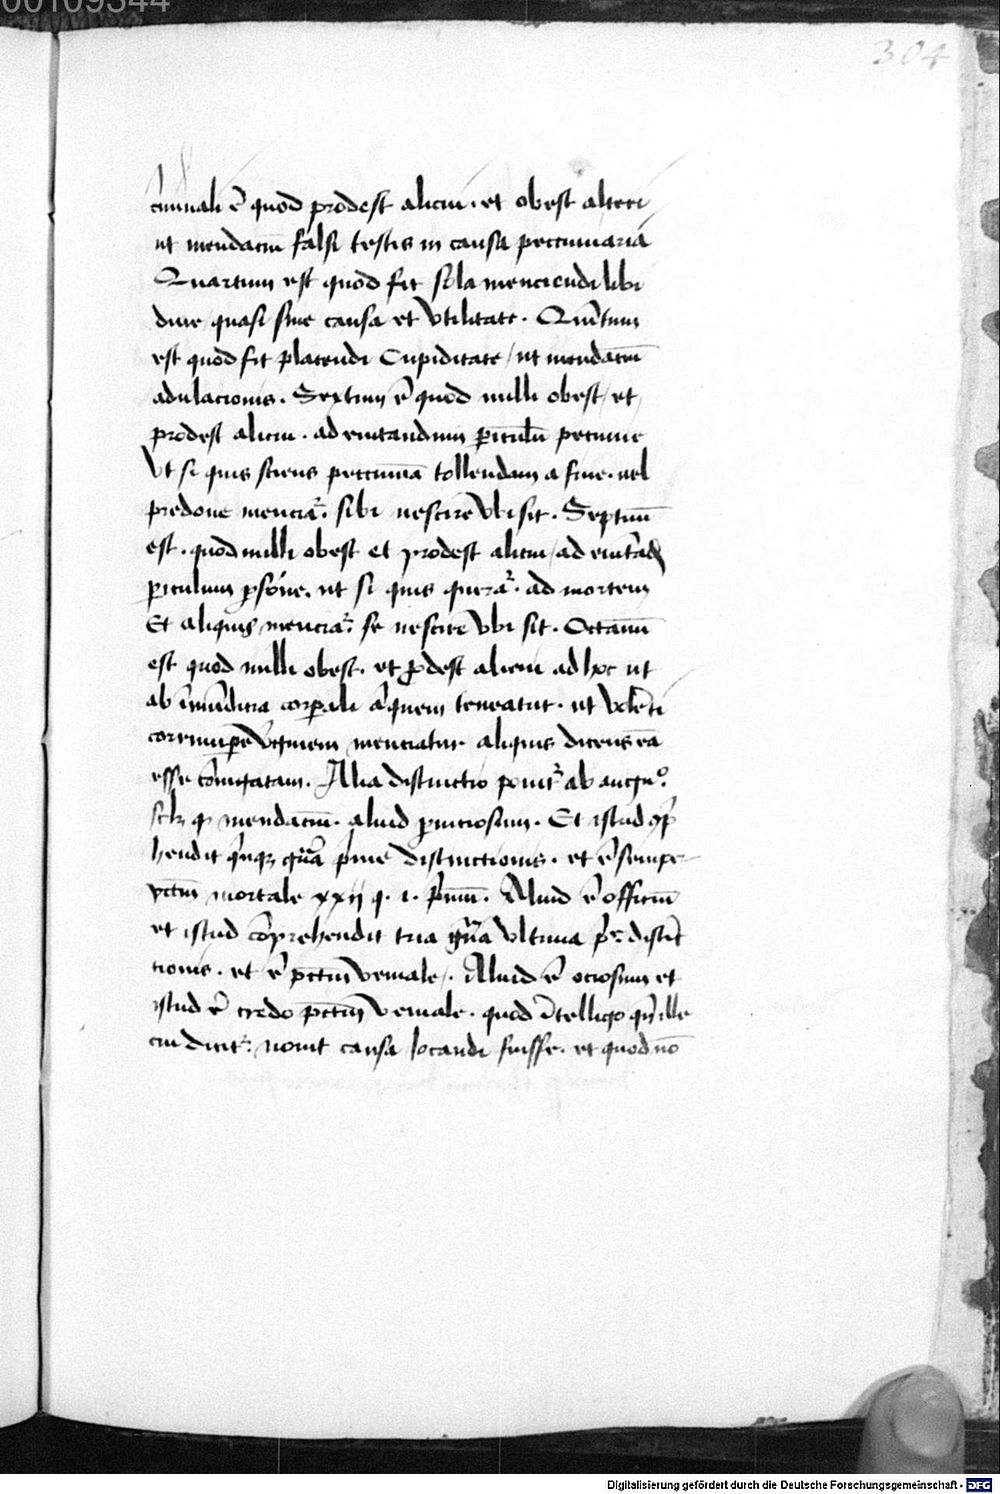 00109344
304
criminali ē quod prodest alicui · et obest alteri
ut mendaciū falsi testis in causa peccuniaria
Quartum est quod fit sola menciendi libi
dine quasi sine causa et vtilitate · Quītum
est quod fit placendi Cupiditate / ut mendaciū
adulacionis · Sextum ē quod nulli obest / et
prodest alicui · ad euitandum piculū pecunie
Vt si quis sciens peccuniā tollendam a fure · uel
predone menciat͛ · sibi nescire Vbi sit · Septimū
est · quod nulli obest et prodest alicui / ad euitādū
piculum psone · ut si quis querat͛ · ad mortem
Et aliquis menciat͛ se nescire vbi sit · Octauū
est quod nulli obest · et pdest alicui ad hoc ut
ab īmūdicia corpali aliquem teneatur · ut Volēti
corrumpe Virginem menciatur aliquis dicens eā
esse cōiugatam · Alia distinctio ponit͛ ab augꝰ
scilꝫ ꝙ mendaciū · aliud pniciosum · Et istud cōp̄
hendit qinqꝫ genera prime distinctionis · et ē semper
pctm̄ mortale xxij q · 1 · primū · Aliud ē officiū
et istud cōprehendit tria genera vltima pre distīc
tionis · et ē pctm̄ veniale / · Aliud ē ociosum et
istud ē credo pctm̄ veniale · quod ītelligo qn̄ ille
cui dicit͛ nouit causa locandi fuisse · et quod nō
Digitalisierung gefördert durch die Deutsche Forschungsgemeinschaft - DFG